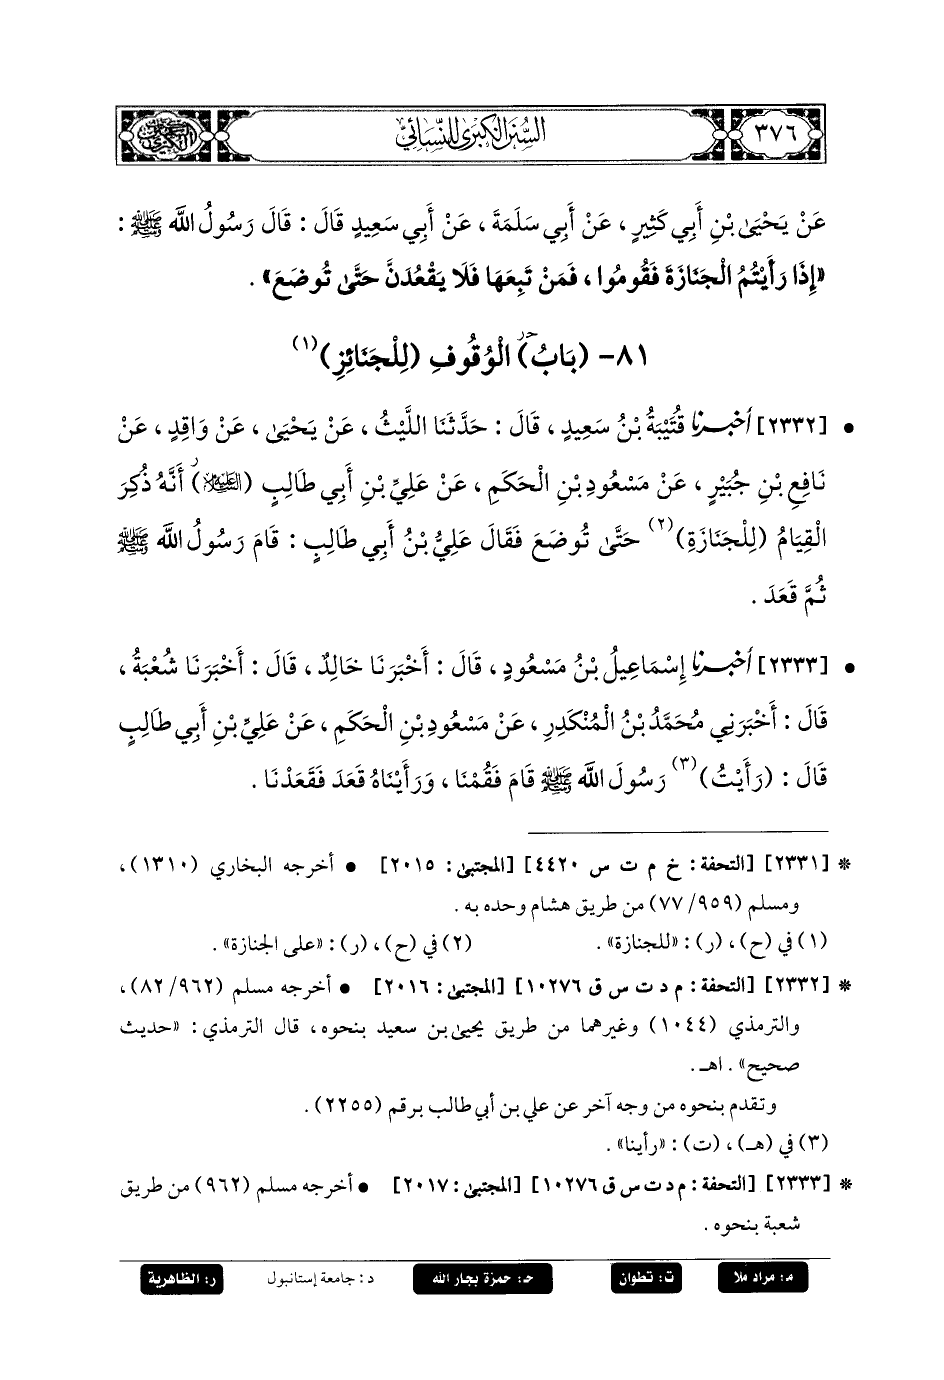 ٣٧٦
السُّنَنُ الكُبْرَى لِلنَّسَائِيّ
عَنْ يَحْيَىٰ بْنِ أَبِي كَثِيرٍ، عَنْ أَبِي سَلَمَةَ، عَنْ أَبِي سَعِيدٍ قَالَ: قَالَ رَسُولُ اللَّه ﷺ:
«إِذَا رَأَيْتُمُ الْجَنَازَةَ فَقُومُوا، فَمَنْ تَبِعَهَا فَلَا يَقْعُدَنَّ حَتَّىٰ تُوضَعَ».
٨١- (بَابُ) الْوُقُوفِ (لِلْجَنَائِزِ)(١)
• [٢٣٣٢] أخبرنا قُتَيْبَةُ بْنُ سَعِيدٍ، قَالَ: حَدَّثَنَا اللَّيْثُ، عَنْ يَحْيَىٰ، عَنْ وَاقِدٍ، عَنْ
نَافِعِ بْنِ جُبَيْرٍ، عَنْ مَسْعُودِ بْنِ الْحَكَمِ، عَنْ عَلِيِّ بْنِ أَبِي طَالِبٍ (عليه السلام) أَنَّهُ ذُكِرَ
الْقِيَامُ (لِلْجَنَازَةِ)(٢) حَتَّىٰ تُوضَعَ فَقَالَ عَلِيُّ بْنُ أَبِي طَالِبٍ: قَامَ رَسُولُ اللَّه ﷺ
ثُمَّ قَعَدَ.
• [٢٣٣٣] أخبرنا إِسْمَاعِيلُ بْنُ مَسْعُودٍ، قَالَ: أَخْبَرَنَا خَالِدٌ، قَالَ: أَخْبَرَنَا شُعْبَةُ،
قَالَ: أَخْبَرَنِي مُحَمَّدُ بْنُ الْمُنْكَدِرِ، عَنْ مَسْعُودِ بْنِ الْحَكَمِ، عَنْ عَلِيِّ بْنِ أَبِي طَالِبٍ
قَالَ: (رَأَيْتُ)(٣) رَسُولَ اللَّه ﷺ قَامَ فَقُمْنَا، وَرَأَيْنَاهُ قَعَدَ فَقَعَدْنَا.
* [٢٣٣١] [التحفة: خ م ت س ٤٤٢٠] [المجتبىٰ: ٢٠١٥] • أخرجه البخاري (١٣١٠)،
ومسلم (٩٥٩/ ٧٧) من طريق هشام وحده به.
(١) في (ح)، (ر): «للجنازة». (٢) في (ح)، (ر): «على الجنازة».
* [٢٣٣٢] [التحفة: م د ت س ق ١٠٢٧٦] [المجتبىٰ: ٢٠١٦] • أخرجه مسلم (٩٦٢/ ٨٢)،
والترمذي (١٠٤٤) وغيرهما من طريق يحيىٰ بن سعيد بنحوه، قال الترمذي: «حديث
صحيح». اهـ.
وتقدم بنحوه من وجه آخر عن علي بن أبي طالب برقم (٢٢٥٥).
(٣) في (هـ)، (ت): «رأينا».
* [٢٣٣٣] [التحفة: م د ت س ق ١٠٢٧٦] [المجتبىٰ: ٢٠١٧] • أخرجه مسلم (٩٦٢) من طريق
شعبة بنحوه.
م: مراد ملا ت: تطوان حـ: حمزة بجار الله د: جامعة إستانبول ر: الظاهرية